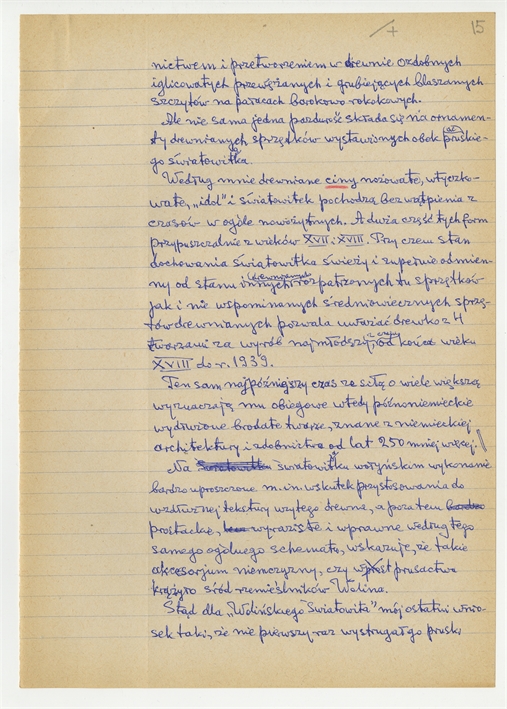 15
nictwem i przetworzeniem w drewnie ozdobnych
iglicowatych przewężanych i grubiejących blaszanych
szczytów na pałacach barokowo rokokowych.
Ale nie sama jedna pazdurość składa się na ornamen-
ty drewnianych sprzętków wystawionych obok aż pruskie-
go światowitka.
Według mnie drewniane cimy nożowate, wtyczko-
wate, „idol" i światowitek pochodzą bez wątpienia z
czasów w ogóle nowożytnych. A duża część tych form
przypuszczalnie z wieków XVII i XVIII. Przy czem stan
dochowania światowitka świeży i zupełnie odmien-
ny od stanu innych drewnianych rozpatrzonych tu sprzętków
jak i nie wspominanych średniowiecznych sprzę-
tów drewnianych pozwala uważać drewko z 4
twarzami za wyrób najmłodszy, od końca wieku
XVIII do r. 1939.
Ten sam najpóźniejszy czas ze siłą o wiele większą
wyznaczają mu obiegowe wtedy późnoniemieckie
wydłużone brodate twarze, znane z niemieckiej
architektury i zdobnictwa od lat 250 mniej więcej.
Na światowitku wolińskim wykonanie
bardzo uproszczone m.in. wskutek przystosowania do
wzdłużnej tekstury użytego drewna, a poza tem
prostackie, wyraziste i wprawne według tego
samego ogólnego schematu, wskazuje, że takie
akcesorjum niemczyzny, czy prusactwa
krążyło śród rzemieślników Wolina.
Stąd dla „Wolińskiego Światowita" mój ostatni wnio-
sek taki, że nie pierwszy raz wystrugał go pruski